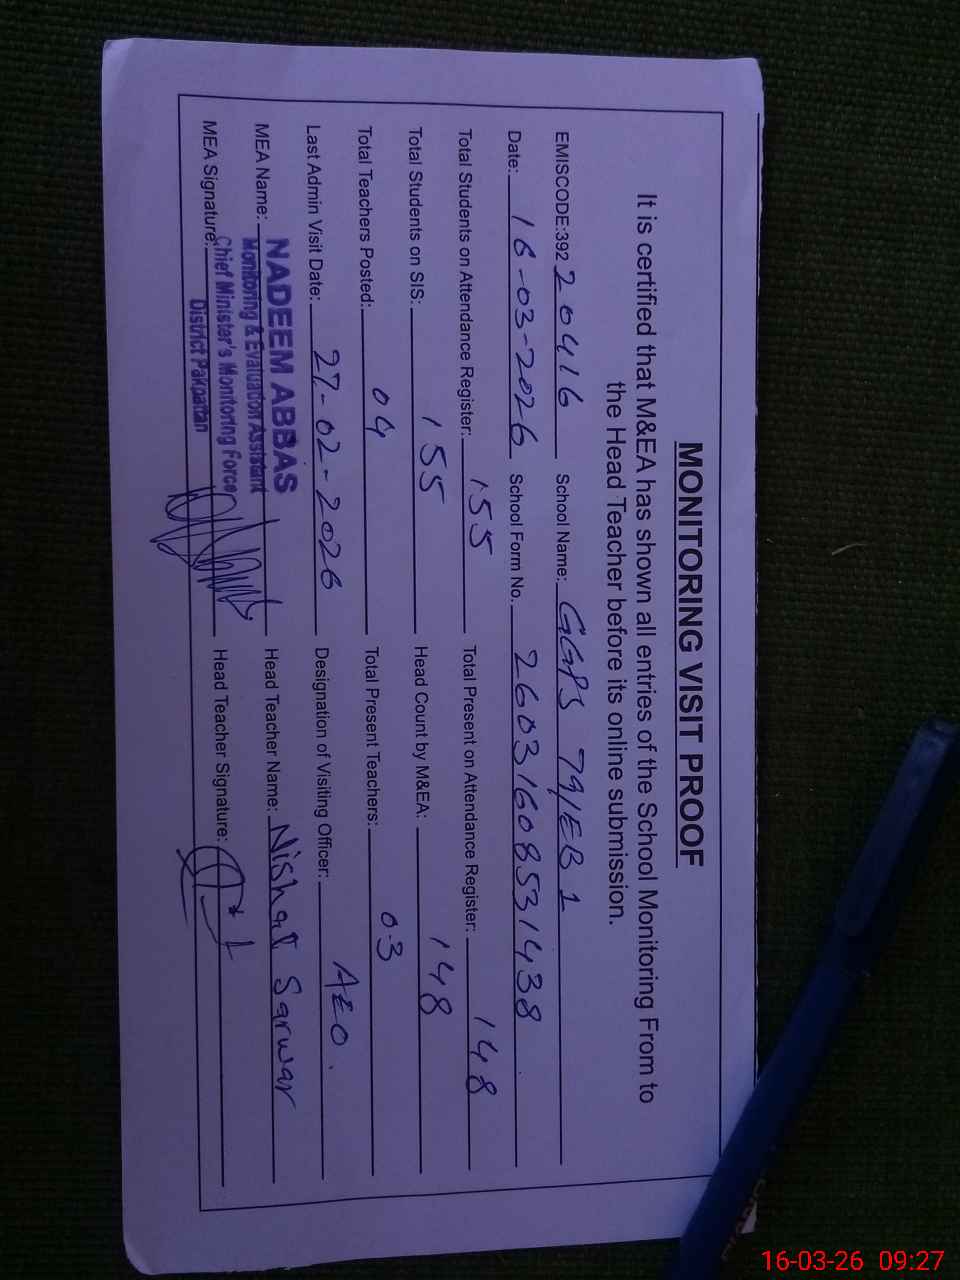 MONITORING VISIT PROOF
It is certified that M&EA has shown all entries of the School Monitoring From to
the Head Teacher before its online submission.
EMISCODE:392 20416 School Name: GGPS 79/EB 1
Date: 16-03-2026 School Form No. 26031608531438
Total Students on Attendance Register: 155 Total Present on Attendance Register: 148
Total Students on SIS: 155 Head Count by M&EA: 148
Total Teachers Posted: 04 Total Present Teachers: 03
Last Admin Visit Date: 27-02-2026 Designation of Visiting Officer: AEO.
MEA Name: NADEEM ABBAS Head Teacher Name: Nishat Sarwar
Monitoring & Evaluation Assistant
MEA Signature: Chief Minister's Monitoring Force Head Teacher Signature:
District Pakpattan
16-03-26 09:27